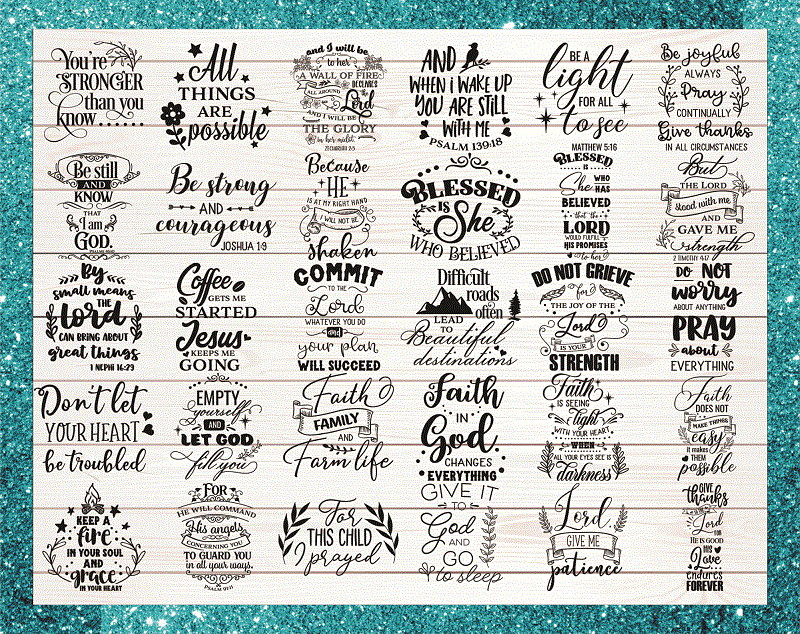 You're
STRONGER
than you
know
All
THINGS
ARE
possible
and I will be
to her
A WALL OF FIRE
ALL AROUND
DECLARES
the Lord
AND I WILL BE
THE GLORY
in her midst.
ZECHARIAH 2:5
AND
WHEN i WAKE UP
YOU ARE STILL
WITH ME
PSALM 139:18
BE A
light
FOR ALL
to see
MATTHEW 5:16
Be joyful
ALWAYS
Pray
CONTINUALLY
Give thanks
IN ALL CIRCUMSTANCES
Be still
AND
KNOW
THAT
I am
GOD.
Be strong
AND
courageous
JOSHUA 1:9
Because
HE
IS AT MY RIGHT HAND
I WILL NOT BE
shaken
BLESSED
IS
She
WHO BELIEVED
BLESSED
IS
She WHO HAS
BELIEVED
that the
LORD
WOULD FULFILL
HIS PROMISES
to her
But
THE LORD
stood with me
AND
GAVE ME
strength
2 TIMOTHY 4:17
By
small means
THE
Lord
CAN BRING ABOUT
great things
1 NEPHI 16:29
Coffee
GETS ME
STARTED
Jesus
KEEPS ME
GOING
COMMIT
TO THE
Lord
WHATEVER YOU DO
and
your plan
WILL SUCCEED
Difficult
roads
often
LEAD
TO
Beautiful
destinations
DO NOT GRIEVE
for
THE JOY OF THE
Lord
IS YOUR
STRENGTH
DO NOT
worry
ABOUT ANYTHING
PRAY
about
EVERYTHING
Don't let
YOUR HEART
be troubled
EMPTY
yourself
AND
LET GOD
fill you
Faith
FAMILY
AND
Farm life
Faith
IN
God
CHANGES
EVERYTHING
Faith
IS SEEING
light
WITH YOUR HEART
WHEN
ALL YOUR EYES SEE IS
darkness
Faith
DOES NOT
MAKE THINGS
easy
it makes
THEM
possible
KEEP A
fire
IN YOUR SOUL
AND
grace
IN YOUR HEART
FOR
HE WILL COMMAND
His angels
CONCERNING YOU
TO GUARD YOU
in all your ways.
PSALM 91:11
For
THIS CHILD
I prayed
GIVE IT
TO
God
AND
GO
to sleep
Lord,
GIVE ME
patience
GIVE
thanks
TO THE
Lord
FOR
HE IS GOOD
HIS
Love
endures
FOREVER